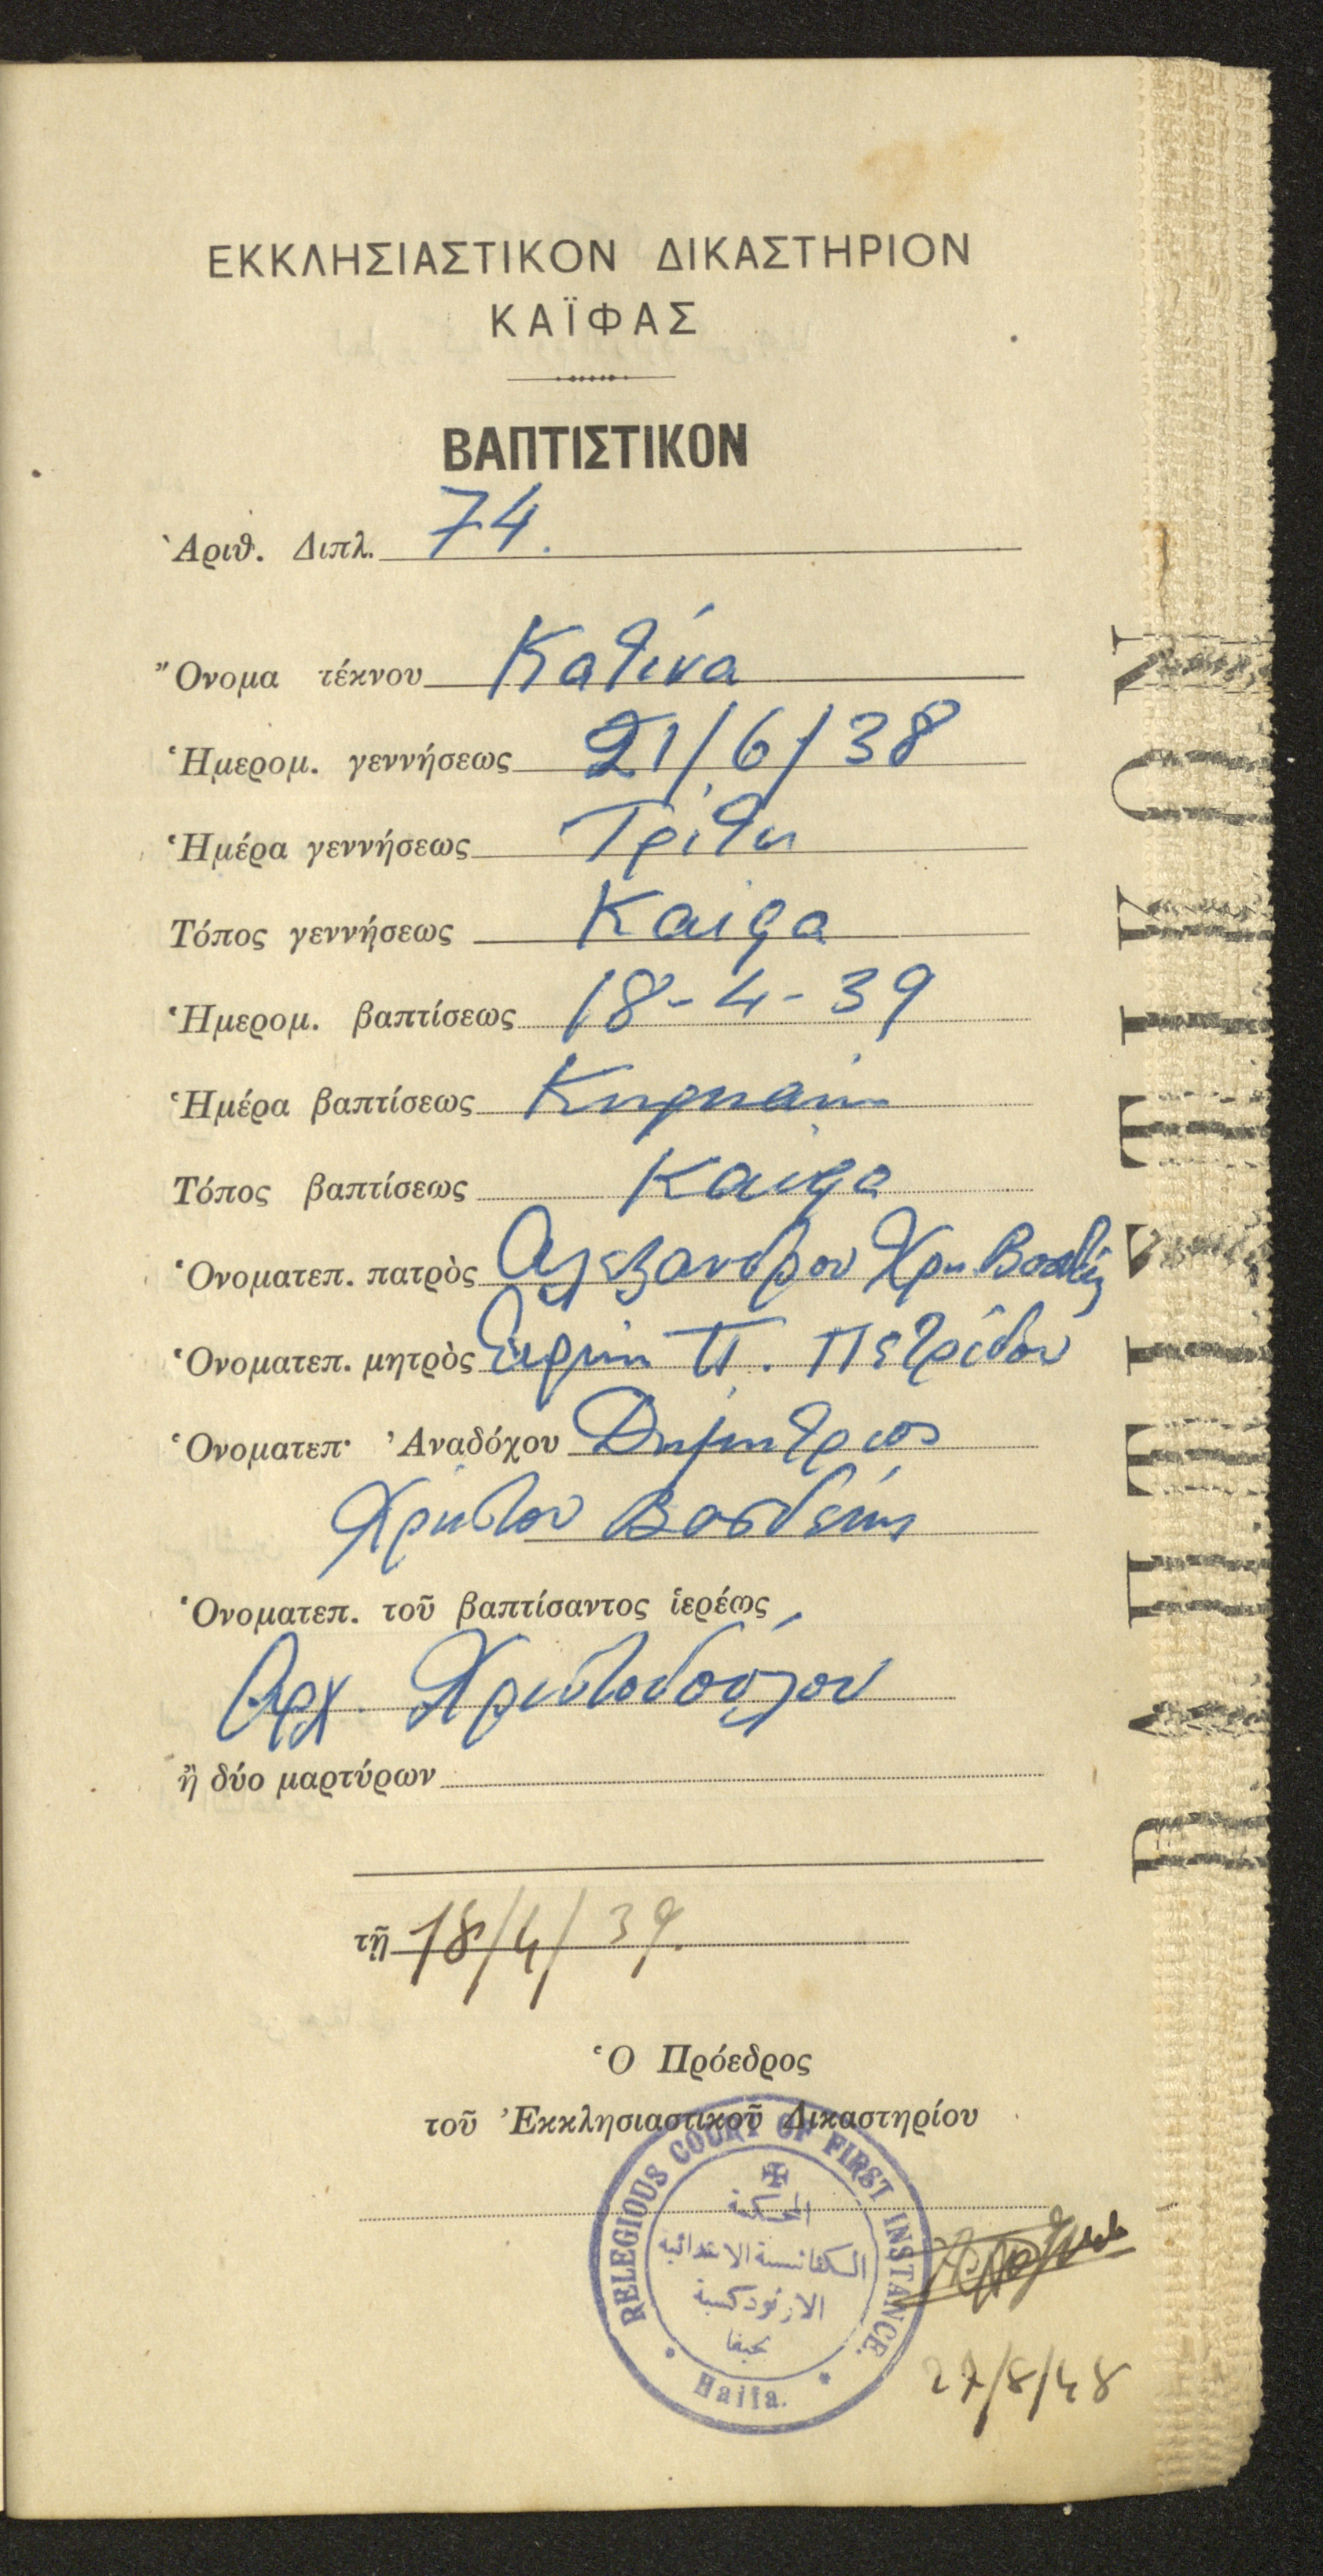 ΕΚΚΛΗΣΙΑΣΤΙΚΟΝ ΔΙΚΑΣΤΗΡΙΟΝ
ΚΑΪΦΑΣ
ΒΑΠΤΙΣΤΙΚΟΝ
Ἀριθ. Διπλ. 74.
Ὄνομα τέκνου Κατίνα
Ἡμερομ. γεννήσεως 21/6/38
Ἡμέρα γεννήσεως Τρίτη
Τόπος γεννήσεως Καιφα
Ἡμερομ. βαπτίσεως 18-4-39
Ἡμέρα βαπτίσεως
Τόπος βαπτίσεως Καιφα
Ὀνοματεπ. πατρὸς Αλεξανδρου Χρ.
Ὀνοματεπ. μητρὸς Ειρήνη Π. Πετρίδου
Ὀνοματεπ. Ἀναδόχου Δημητριος
Χρήστου
Ὀνοματεπ. τοῦ βαπτίσαντος ἱερέως
Αρχ. Χριστοδούλου
ἢ δύο μαρτύρων
τῇ 18/4/39.
Ὁ Πρόεδρος
τοῦ Ἐκκλησιαστικοῦ Δικαστηρίου
RELEGIOUS COURT OF FIRST INSTANCE.
المحكمة
الكنائسية الابتدائية
الارثوذكسية
بحيفا
Haifa.
27/8/48
ΒΑΠΤΙΣΤΙΚΟΝ